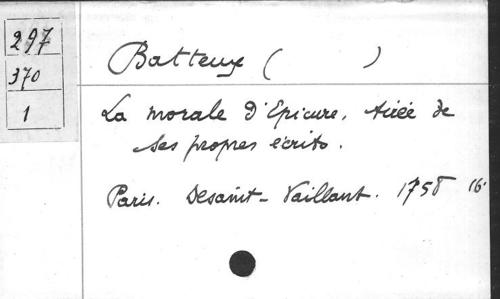 297
370
1
Batteux ( )
La morale d'Epicure, tirée de
ses propres écrits.
Paris. Desaint-Vaillant. 1758 16.